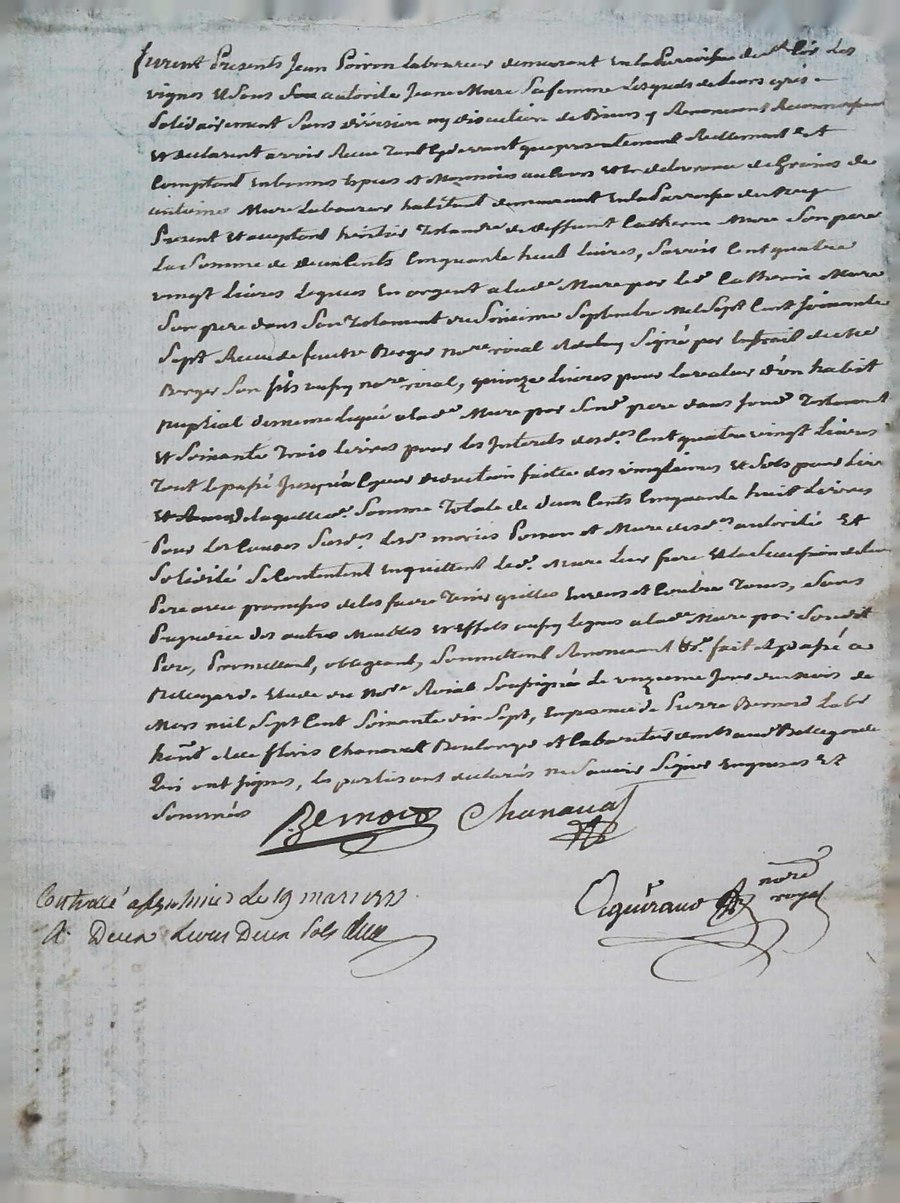 furent Presents Jean Poiron Laboureur demeurant En la Paroisse de St Cir les
vignes Et Sous Son autorité Jeane Mure Sa femme Lesquels de Leurs grés
Solidairement Sans division ny discution de Biens y Renoncant
Et declarent avoir Receu Tant Cydevant que presentement Reellement Et
Comptant En bonnes Especes Et Monnoies au Cours Et de
antoine Mure Laboureur habitant demeurant En la Parroisse de
Present Et acceptant heritier Testamre de deffunt Catherin Mure Son pere
La Somme de deux Cents Cinquante huit Livres, Savoir Cent quatre
vingt Livres Legués En argent a lade Mure par led. Catherin Mure
Son pere dans Son Testament du Seisieme Septembre Mil Sept Cent Soixante
Sept Receu de feu Me Berger nore roial Signé par de Me
Berger Son fils aussy nore roial, quinze Livres pour La valeur d'un habit
nuptial de meme Legué a lade Mure par Sond. pere dans Sond. Testament
Et Soixante Trois Livres pour Les Interets desds Cent quatre vingt Livres
Tout Le passé Jusqu'à Ce jour deduction faitte des vingtiemes Et Sols pour Livre
laquelle de. Somme Totale de deux Cents Cinquante huit Livres
Pour Les Causes Susds. Lesds mariés Poiron et Mure desds autorité Et
Solidité Se Contentent En quittent Led. Mure Leur frere Et la Succession de Leur
Pere avec promesses de Les faire Tenir quittes Envers et Contre Tous, Sans
Prejudice des autres Meubles Et Effets aussy Legués a lade Mure par Sondit
Pere, Promettant, obligeant, Soumettant Renoncant &c. fait Et passé a
Bellegarde Etude du Nore Roial Soussigné Le Jour du Mois de
Mars mil Sept Cent Soixante dix Sept, En presence de Pierre Bernord Labr
hant Chanavat Boulanger et Cabaretier Bellegarde
Qui ont Signés, Les parties ont declarés ne Savoir Signer Enquises Et
Sommées
Bernord Chanavat
Controllé a le 19 mars 1777
A Deux Livres Deux Sols
nore
royal